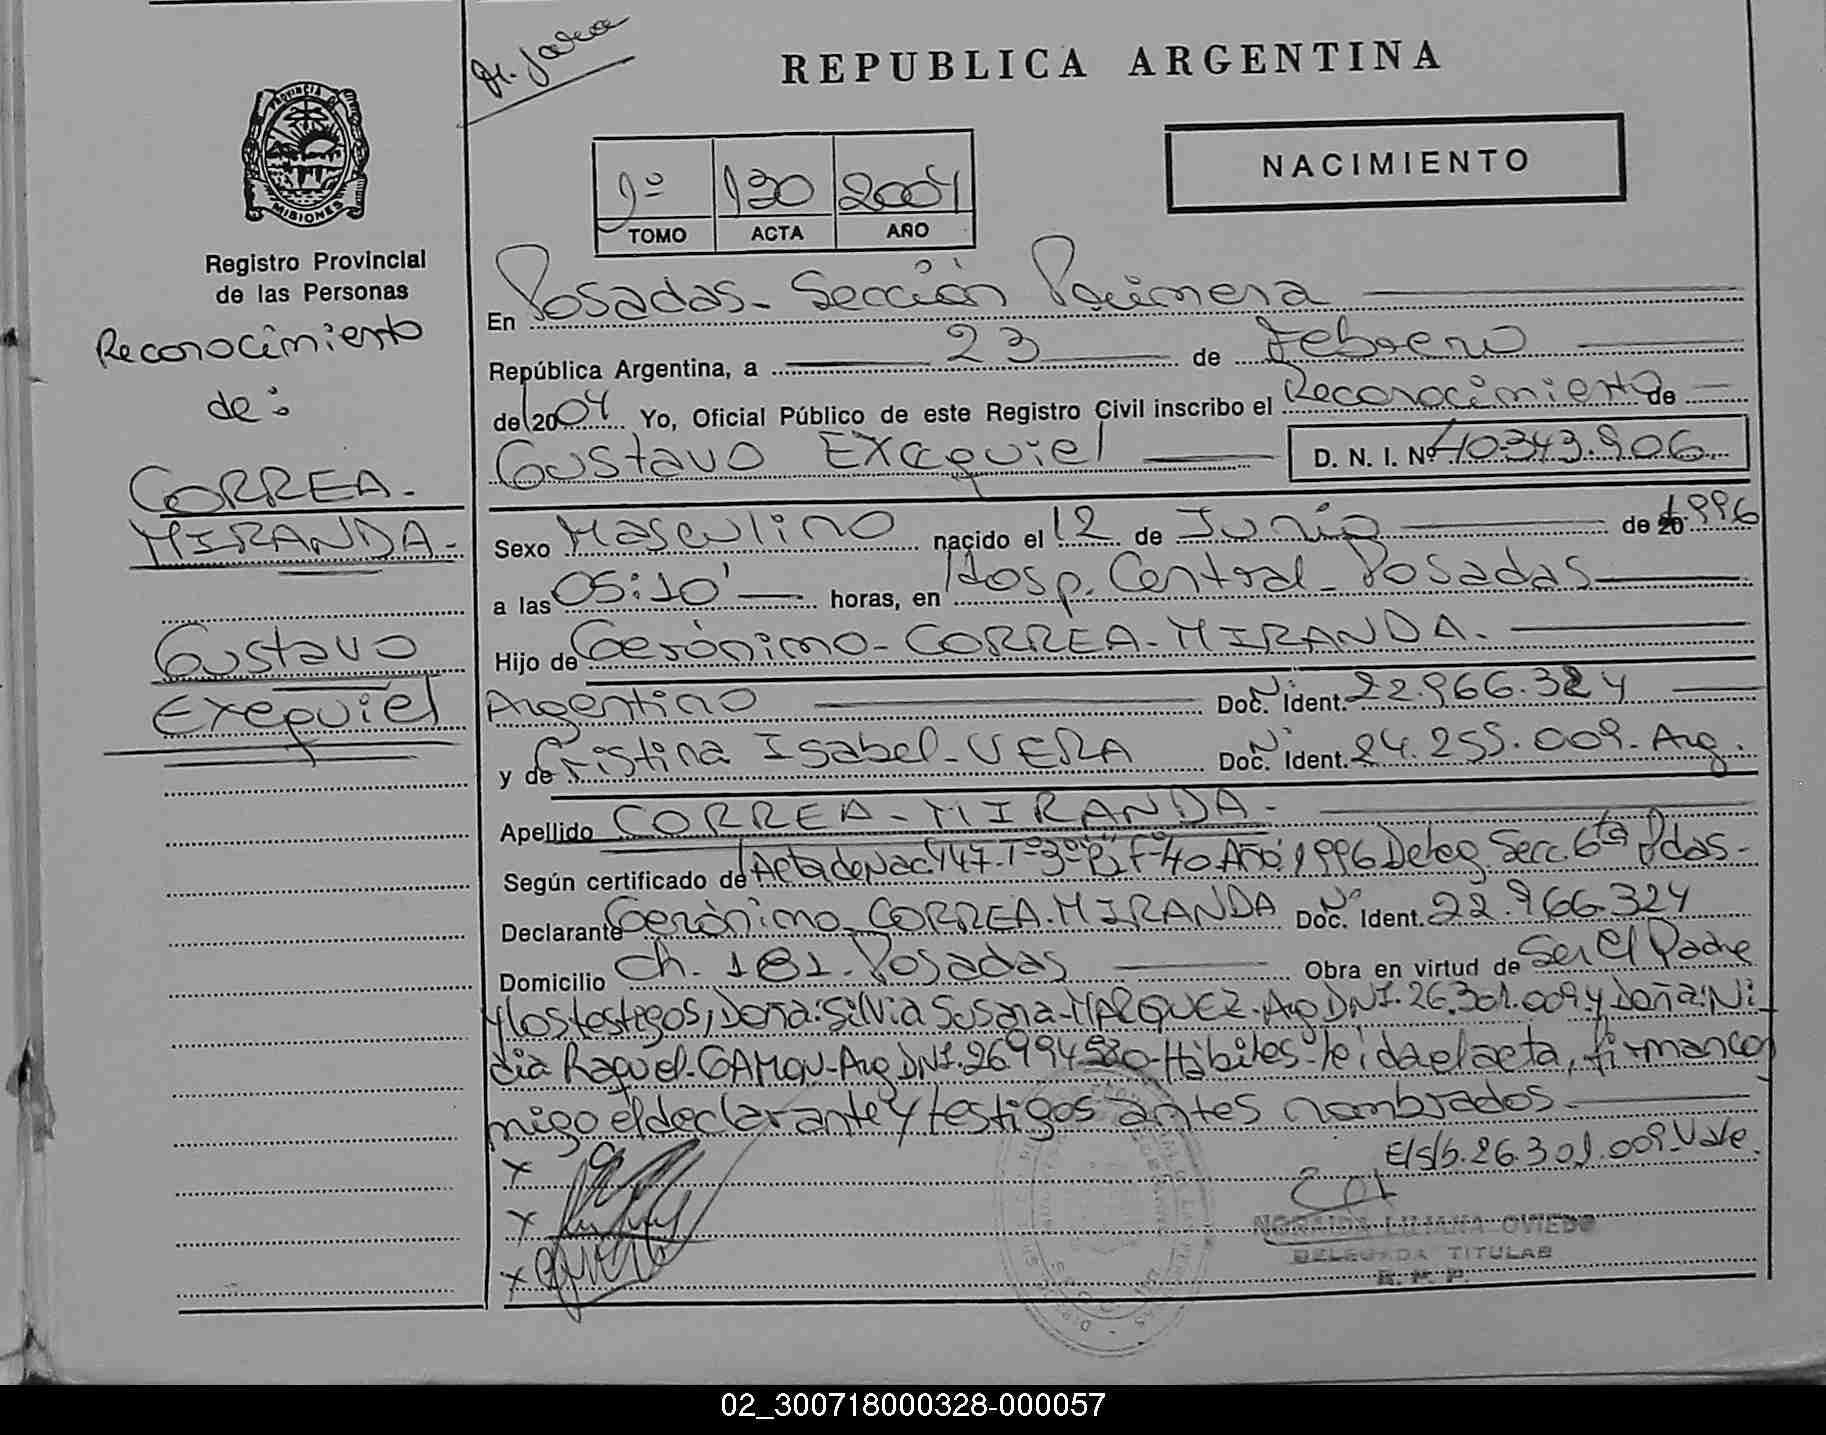 REPUBLICA ARGENTINA
NACIMIENTO
1º 130 2004
TOMO ACTA AÑO
PROVINCIA DE
MISIONES
Registro Provincial
de las Personas
Reconocimiento
de:
CORREA-
MIRANDA-
Gustavo
Exequiel
En Posadas- Sección Primera
República Argentina, a 23 de Febrero
de 2004 Yo, Oficial Público de este Registro Civil inscribo el Reconocimiento de
Gustavo Exequiel D. N. I. Nº 40.343.906
Sexo Masculino nacido el 12 de Junio de 20 1996
a las 05:10' horas, en Hosp. Central- Posadas
Hijo de Gerónimo- CORREA-MIRANDA.
Argentino Nº Doc. Ident. 22.966.324
y de Cristina Isabel-VERA Nº Doc. Ident. 24.255.009-Arg.
Apellido CORREA-MIRANDA-
Según certificado de Acta de Nac. 147-Tº3º Fº40 Año 1996 Deleg. Secc. 6ta Pdas-
Declarante Gerónimo-CORREA-MIRANDA Nº Doc. Ident. 22.966.324
Domicilio Ch. 181-Posadas Obra en virtud de Ser El Padre
y los testigos, Doña: Silvia Susana-MARQUEZ-Arg DNI. 26.301.009 y Doña: Ni
dia Raquel-GAMON-Arg DNI. 26994580-Hábiles-leida el acta, firman con
migo el declarante y testigos antes nombrados
E/s/b. 26.301.009-Vale.
x
x
x
NORAIDA LILIANA OVIEDO
DELEGADA TITULAR
R. P. P.
02_300718000328-000057